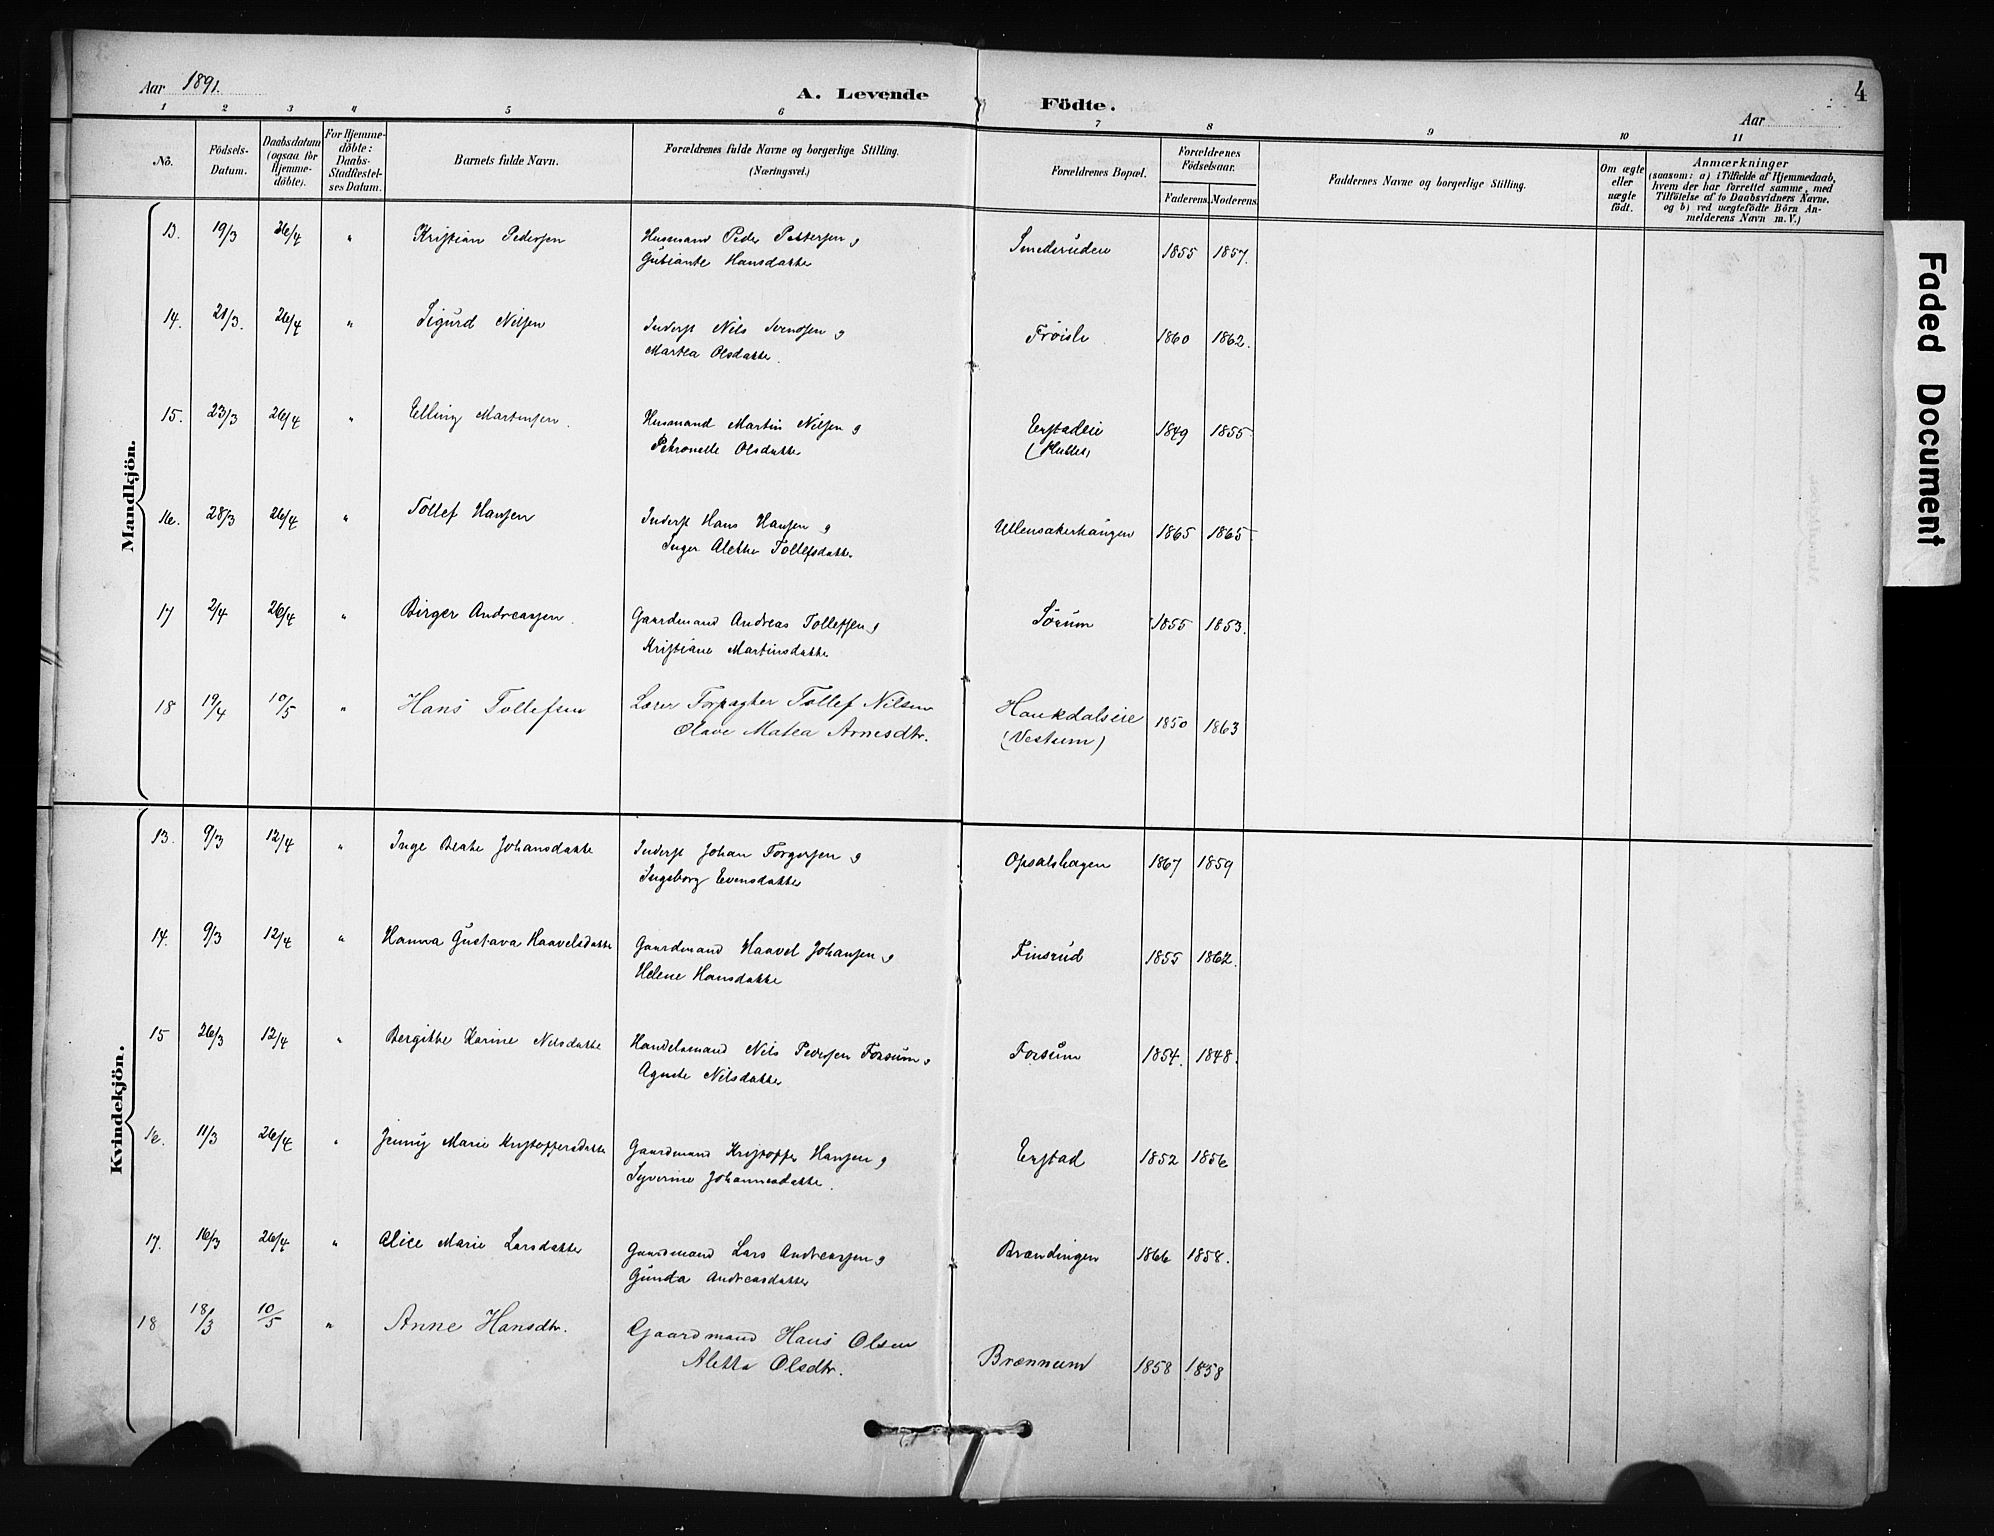 Aar 1891.
A. Levende Födte.
Aar
4
1 2 3 4 5 6 7 8 9 10 11
No.
Födsels-Datum.
Daabsdatum (ogsaa for Hjemmedöbte).
For Hjemmedöbte: Daabs-Stadfæstelses Datum.
Barnets fulde Navn.
Forældrenes fulde Navne og borgerlige Stilling. (Næringsvei.)
Forældrenes Bopæl.
Forældrenes Födselsaar.
Faderens. Moderens.
Faddernes Navne og borgerlige Stilling.
Om ægte eller uægte födt.
Anmærkninger
(saasom: a) i Tilfælde af Hjemmedaab, hvem der har forrettet samme, med Tilföielse af to Daabsvidners Navne. og b) ved uægtefödte Börn Anmelderens Navn m. V.)
Mandkjön.
13. 19/3 26/4 " Kristian Pedersen Husmand Peder Pettersen og Smedsruden 1855 1857.
Hansdatter
14. 21/3. 26/4 " Sigurd Nilsen Inderst Nils Svendsen og Frøisli 1860 1862.
Martea Olsdatter.
15. 23/3 26/4 " Elling Martinsen. Husmand Martin Nilsen og Erstadeie 1849 1855.
Petronelle Olsdatter
16. 28/3 26/4 " Tollef Hansen Inderst Hans Hansen og Ullensakerhaugen 1865 1865
Inger Alethe Tollefsdatter
17 2/4 26/4 " Birger Andreassen. Gaardmand Andreas Tollefsen og Sørum 1855 1853.
Kristiane Martinsdatter
18 19/4 10/5 " Hans Tollefsen Lærer Forpagter Tollef Nilsen Haukdalseie 1850 1863
Olave Matea Arnesdtr. (Vestum)
Kvindekjön.
13. 9/3 12/4 " Inge Beate Johansdatter Inderst Johan Torgersen og Opsalshagen 1867 1859
Ingeborg Evensdatter
14. 9/3 12/4 " Hanna Gustava Haavelsdatter Gaardmand Haavel Johansen og Finsrud 1855 1862.
Helene Hansdatter
15 26/3 12/4 " Bergitte Karine Nilsdatter Handelsmand Nils Pedersen Forsum og Forsum 1854. 1848.
Agnete Nilsdatter
16. 11/3 26/4 " Jenny Marie Kristoffersdatter Gaardmand Kristoffer Hansen og Erstad 1852 1856
Syverine Johannesdatter.
17. 16/3 26/4 " Alice Marie Larsdatter Gaardmand Lars Andreassen og Brændingen 1866 1858.
Gunda Andreasdatter
18 18/3 10/5 " Anne Hansdtr. Gaardmand Hans Olsen Brænnum 1858 1858
Aletta Olsdtr.
Faded Document